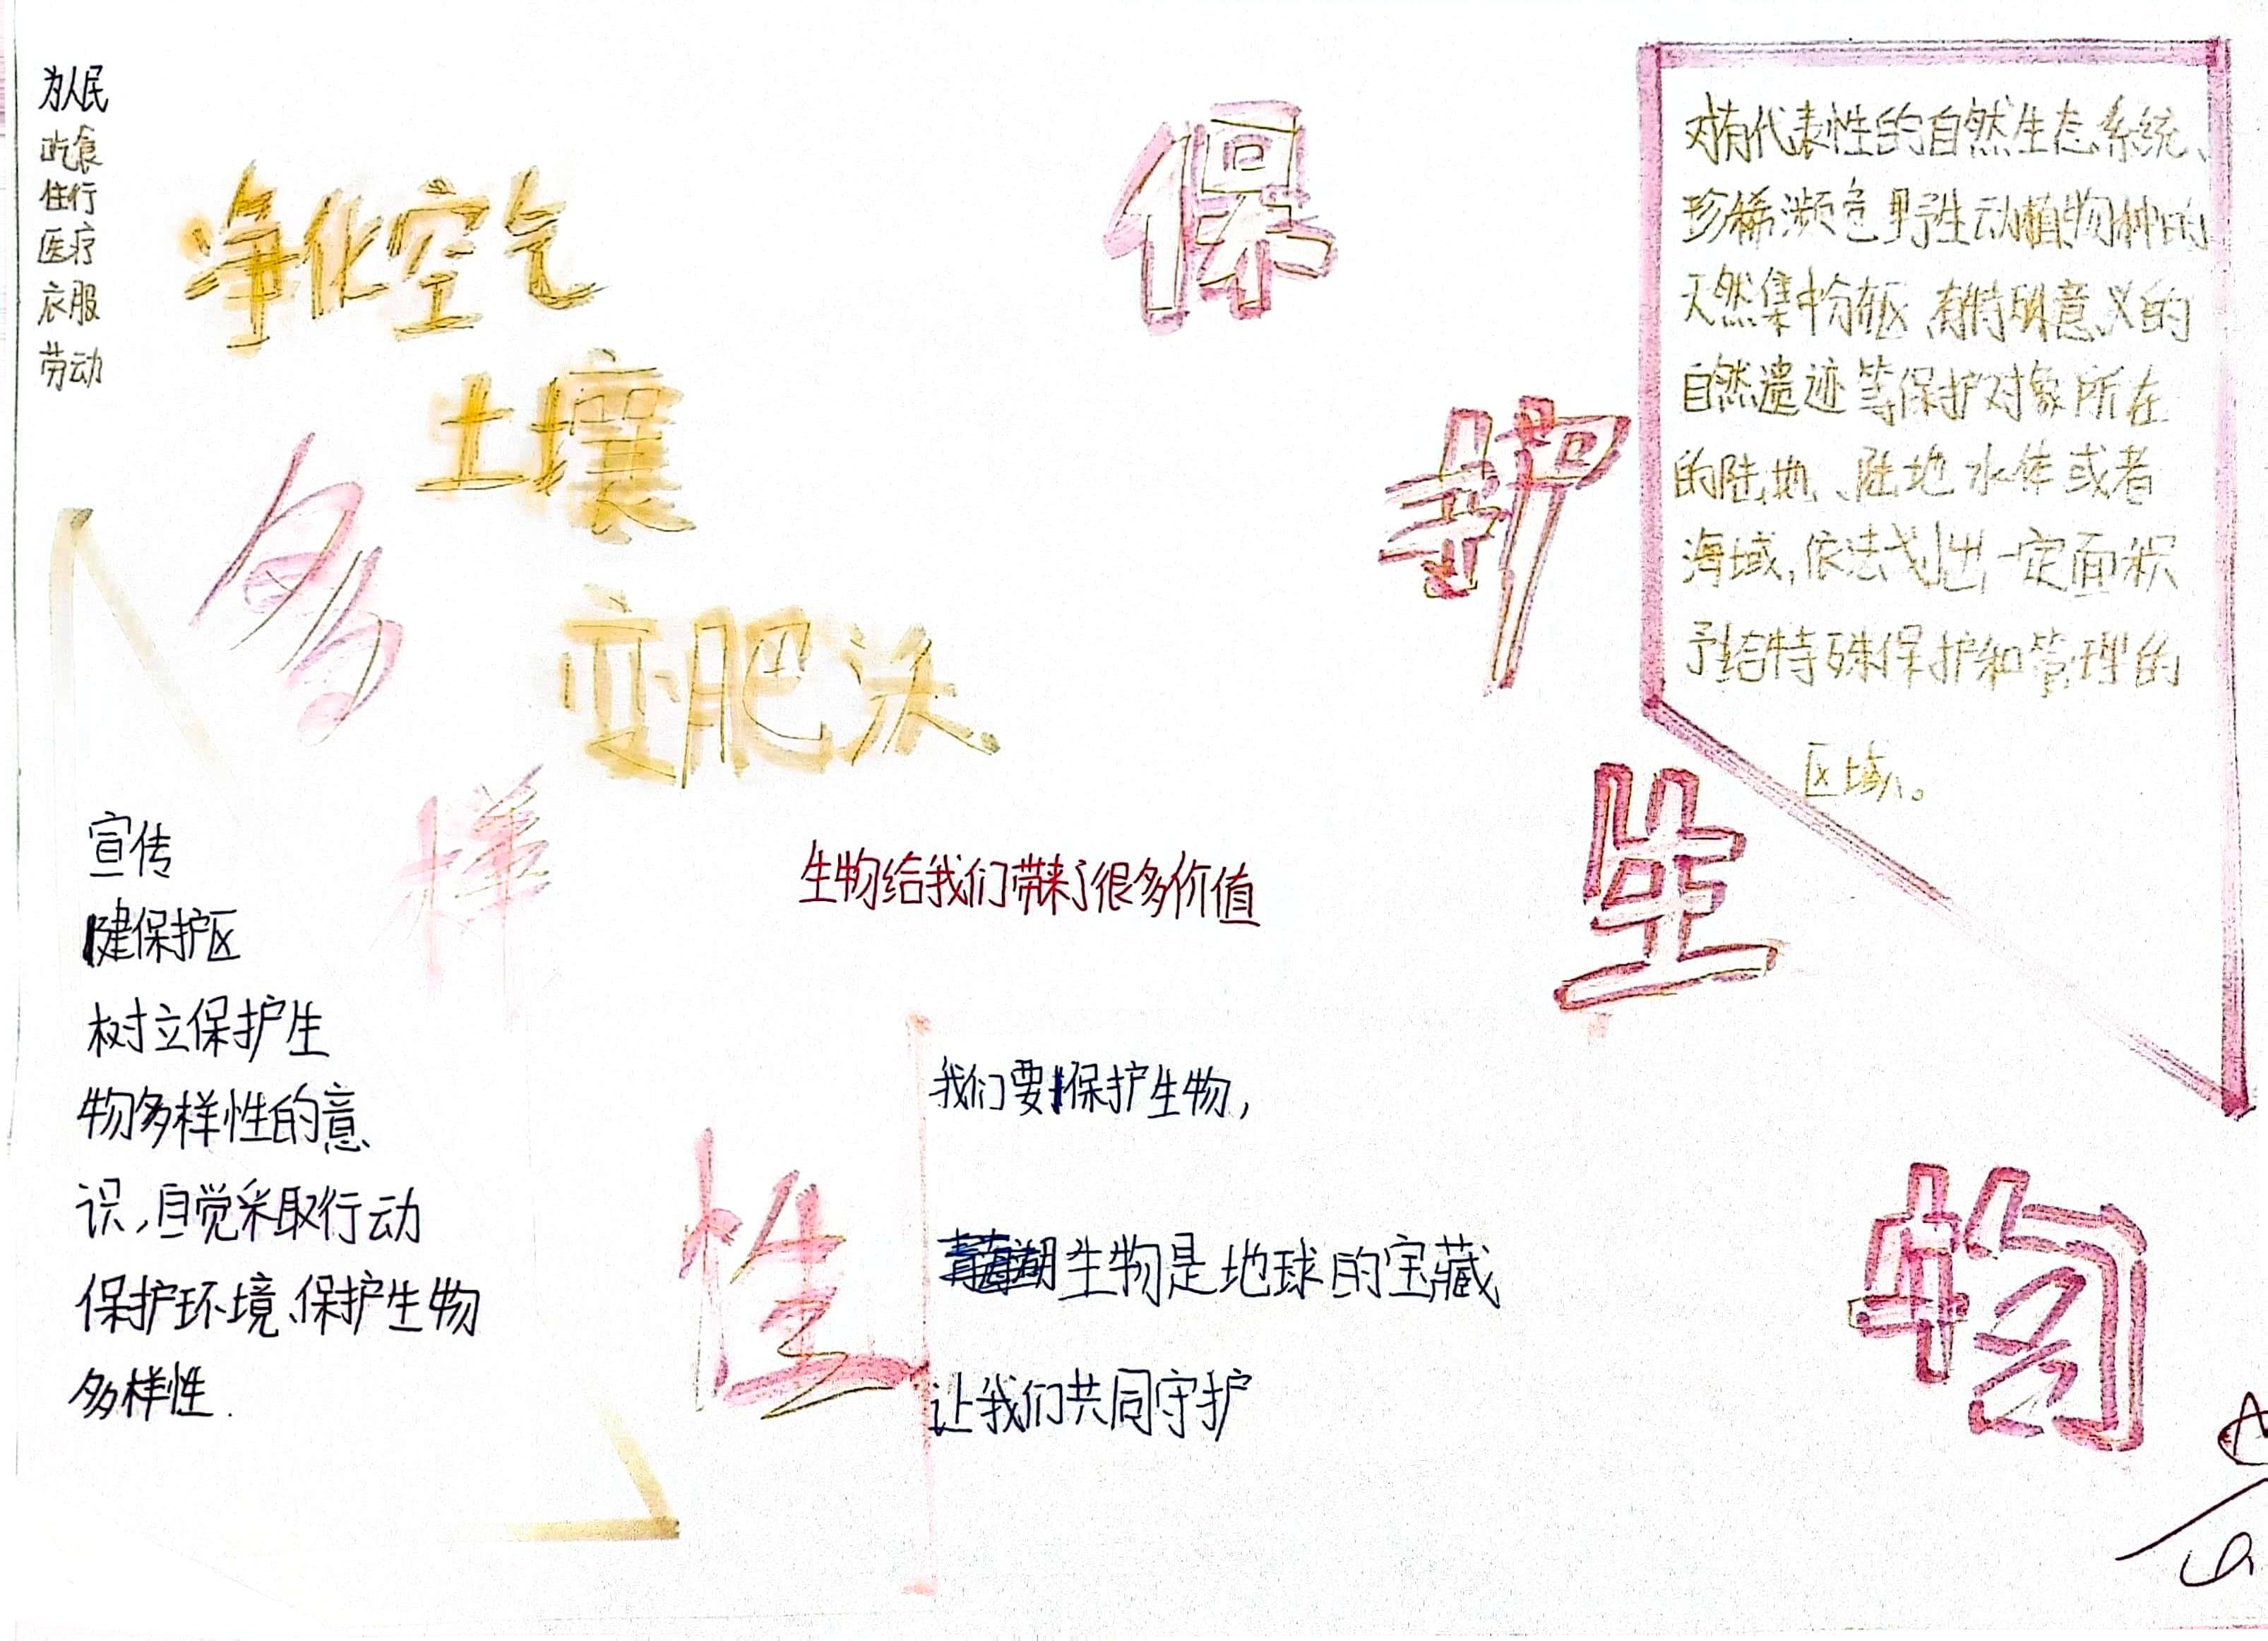 为人民
吃食
住行
医疗
衣服
劳动
净化空气
土壤
变肥沃
保
护
生
物
多
样
性
对有代表性的自然生态系统、
珍稀濒危野生动植物种的
天然集中分布区、有特明意义的
自然遗迹等保护对象所在
的陆地、陆地水体或者
海域,依法划出一定面积
予给特殊保护和管理的
区域。
生物给我们带来了很多价值
宣传
健保护区
树立保护生
物多样性的意
识,自觉采取行动
保护环境、保护生物
多样性.
我们要保护生物,
生物是地球的宝藏
让我们共同守护